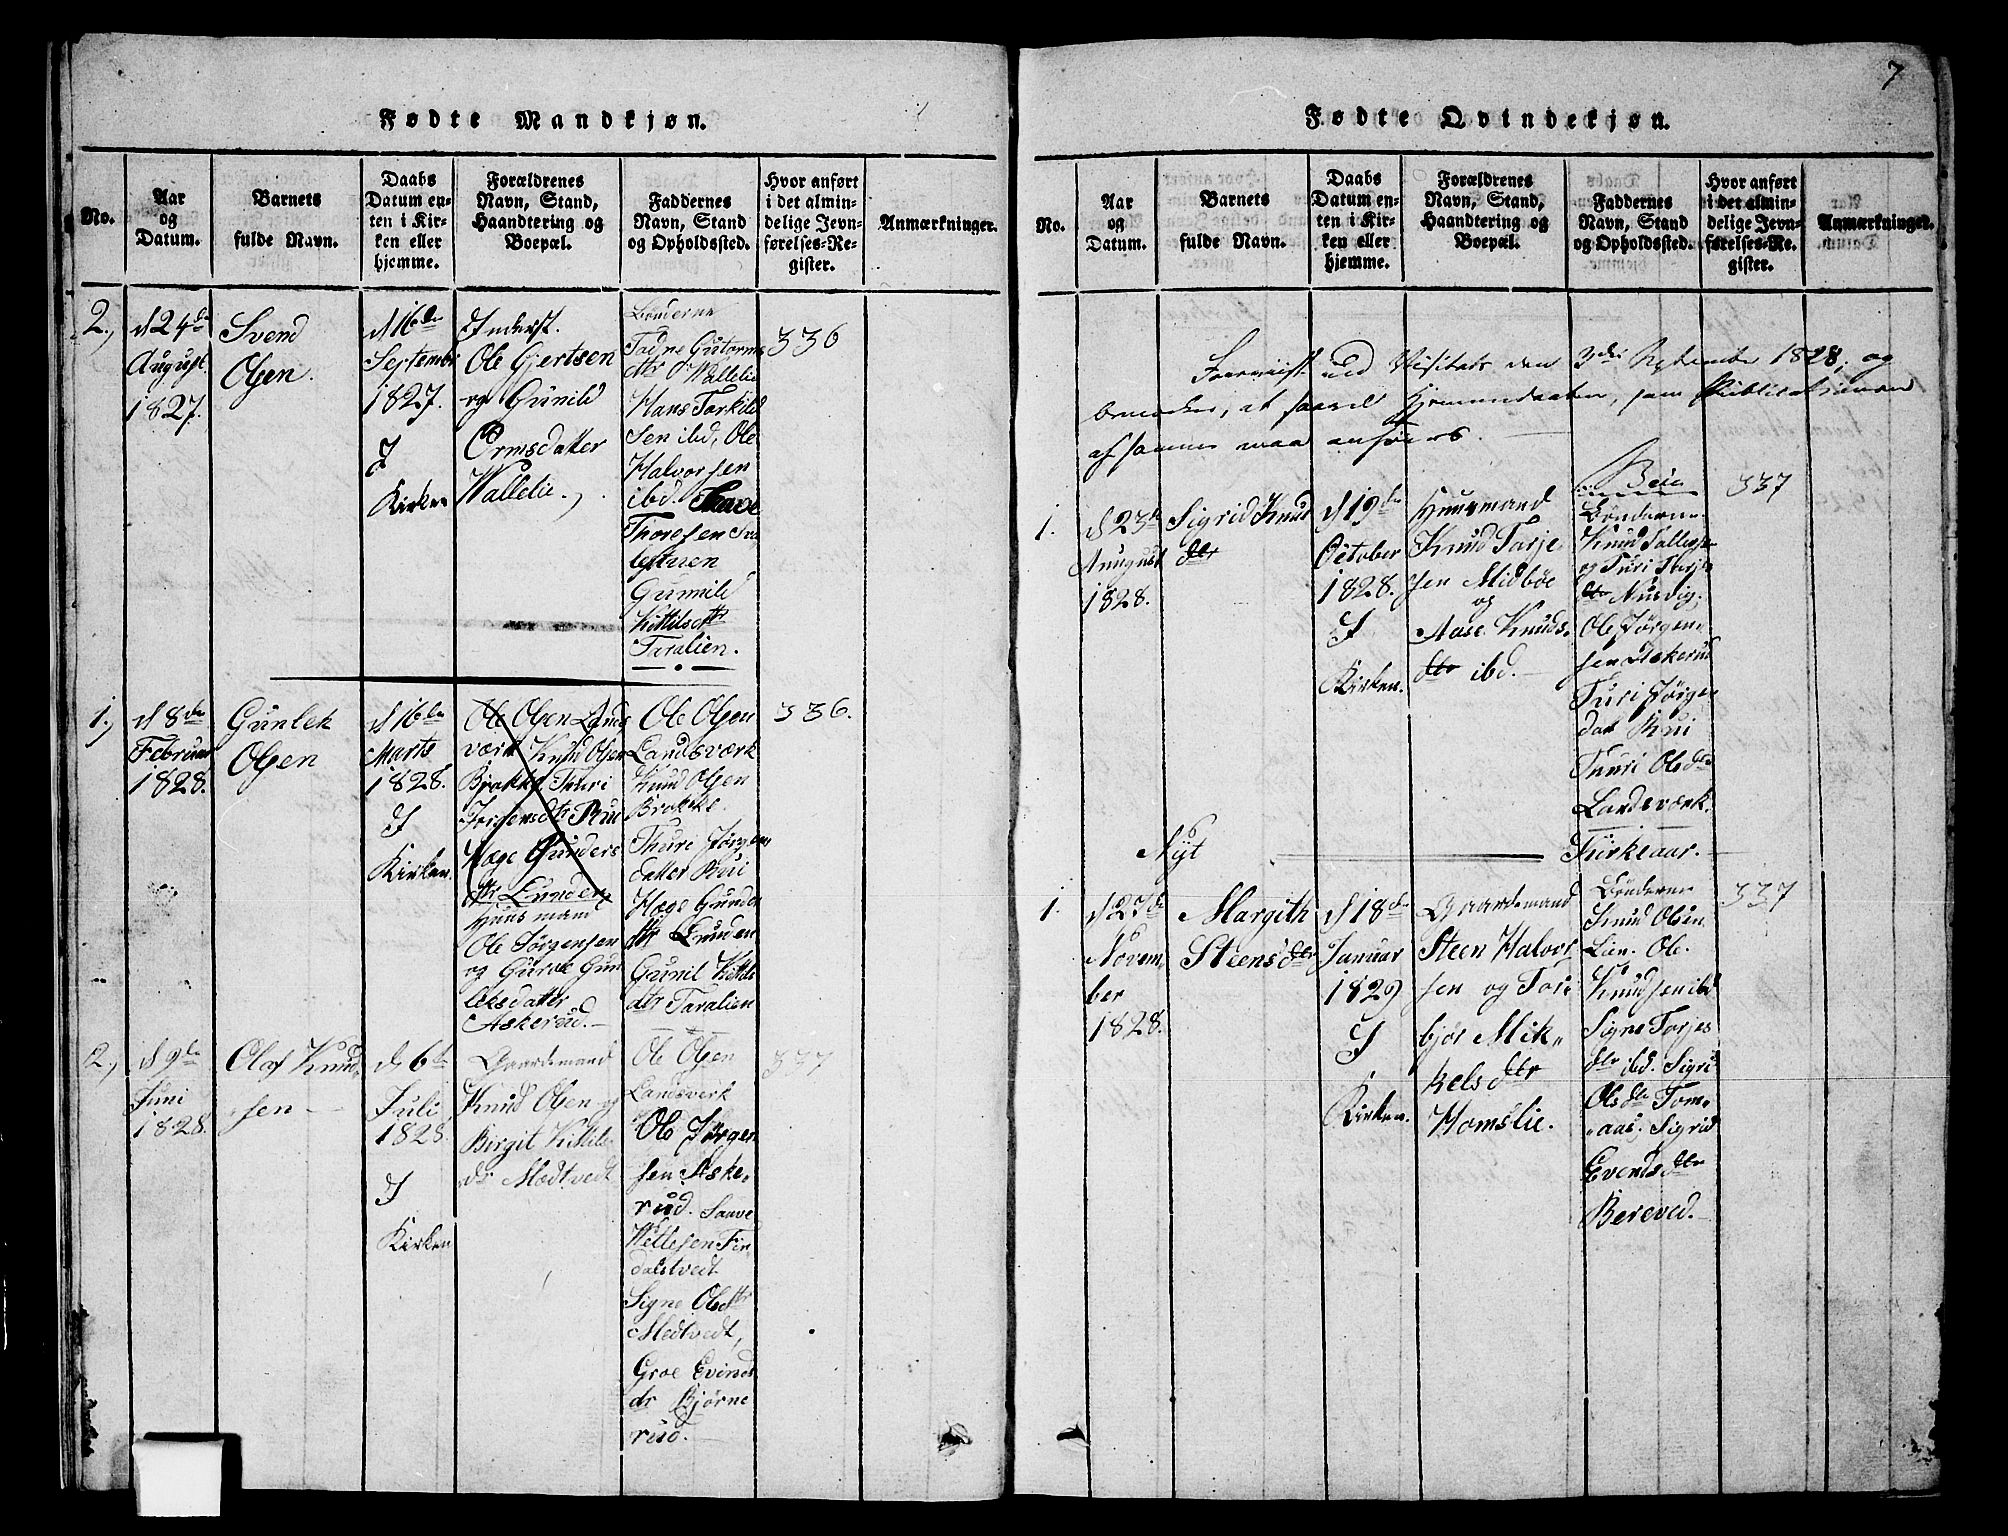 Fødte Mandkjøn.
No.
Aar
og
Datum.
Barnets
fulde Navn.
Daabs
Datum en-
ten i Kir-
ken eller
hjemme.
Forældrenes
Navn, Stand,
Haandtering og
Boepæl.
Faddernes
Navn, Stand
og Opholdssted.
Hvor anført
i det almin-
delige Jevn-
førelses-Re-
gister.
Anmærkninger.
2.,
d 24de
August
1827.
Svend
Olsen.
d 16de
Septembr
1827.
I
Kirken
Inderst.
Ole Gjertsen
og Gunild
Ormsdatter
Wallelie.
Bønderne
Gutorms
dtr Wallelie
Hans Torkild
sen ibd, Ole
Halvorsen
ibd. Saave
Thoresen
Gunnild
Kittilsdtr
Taralien.
336
1.,
d 8de
Februar
1828.
Gunlek
Olsen
d 16de
Marts
1828.
I
Kirken.
Ole Olsen Lands
værk Knud Olsen
Brokke Thuri
Jørgensdtr Rui
Hæge Gunders
dtr Lunden
Huusmand
Ole Jørgensen
og Guroe Gun
leksdatter
Askerud.
Ole Olsen
Landsværk
Knud Olsen
Brokke.
Thuri Jørgens
datter Rui
Hæge Gunder
dtr Lunden
Gunil Kittils
dtr Taralien
336.
2.,
d 9de
Juni
1828.
Olaf Knud
sen
d 6te
Juli
1828.
I
Kirken
Gaardemand
Knud Olsen og
Birgit Kittils
dr Medtvedt
Ole Olsen
Landsverk
Ole Jørgen
sen Aske,
rud. Saave
Kittelsen Fin
dalstvedt
Signe Olsdtr
Medtvedt,
Groe Evinds
dr Bjørne
rud.
337
7
Fødte Qvindekjøn.
No.
Aar
og
Datum.
Barnets
fulde Navn.
Daabs
Datum en-
ten i Kir-
ken eller
hjemme.
Forældrenes
Navn, Stand,
Haandtering og
Boepæl.
Faddernes
Navn, Stand
og Opholdssted.
Hvor anført
i det almin-
delige Jevn-
førelses-Re-
gister.
Anmærkninger.
Foreviist ved Visitats den 3die September 1828, og
bemærkes, at saavel Hjemmedaaben, som Publicationen
af samme maa anføres.
1.
d 23de
August
1828.
Sigrid Knud
dtr
d 19de
October
1828.
I
Kirken.
Huusmand
Knud Tarje
sen Midbøe
og
Aase Knuds
dtr ibd.
Bønderne
Knud
og Turi Tarje
dtr Nusvig,
Ole Jørgen
sen Askerud
Turi Jørgen
dat Rui
Tuuri Olsdtr
Landsværk.
337
Nyt
Kirkeaar.
1.
d 27de
Novem
ber
1828.
Margith
Steensdtr
d 18de
Januar
1829
I
Kirken.
Gaardemand
Steen Halvor
sen og Tore
bjør Mik
kelsdtr
Homslie.
Bønderne
Knud Olsen
Lien. Ole
Knudsen ibd
Signe Torjes
dtr ibd. Sigri
Olsdtr Tom
aas, Sigrid
Evendsdtr
Bereved.
337